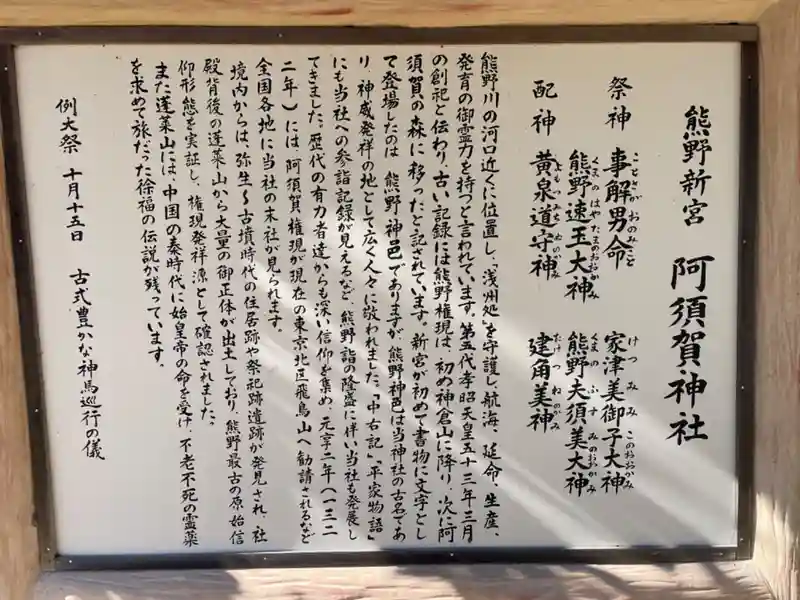 熊野新宮 阿須賀神社
祭神 事解男命 家津美御子大神
ことさかおのみこと けつみみこのおおかみ
熊野速玉大神 熊野夫須美大神
くまのはやたまのおおかみ くまのふすみのおおかみ
配神 黄泉道守神 建角美神
よもつちもりのかみ たけつねのかみ
熊野川の河口近くに位置し、浅州処を守護し、航海、延命、生産、
発育の御霊力を持つと言われています。第五代孝昭天皇五十三年三月
の創祀と伝わり、古い記録には熊野権現は、初め神倉山に降り、次に阿
須賀の森に移ったと記されています。新宮が初めて書物に文字とし
て登場したのは 熊野神邑でありますが、熊野神邑は当神社の古名であ
り、神威発祥の地として広く人々に敬われました。「中右記」「平家物語」
にも当社への参詣記録が見えるなど、熊野詣の隆盛に伴い当社も発展し
てきました。歴代の有力者達からも深い信仰を集め、元亨二年(一三二
二年)には阿須賀権現が現在の東京北区飛鳥山へ勧請されるなど
全国各地に当社の末社が見られます。
境内からは、弥生~古墳時代の住居跡や祭祀跡遺跡が発見され、社
殿背後の蓬莱山から大量の御正体が出土しており、熊野最古の原始信
仰形態を実証し、権現発祥源として確認されました。
また蓬莱山には、中国の秦時代に始皇帝の命を受け、不老不死の霊薬
を求めて旅だった徐福の伝説が残っています。
例大祭 十月十五日 古式豊かな神馬巡行の儀